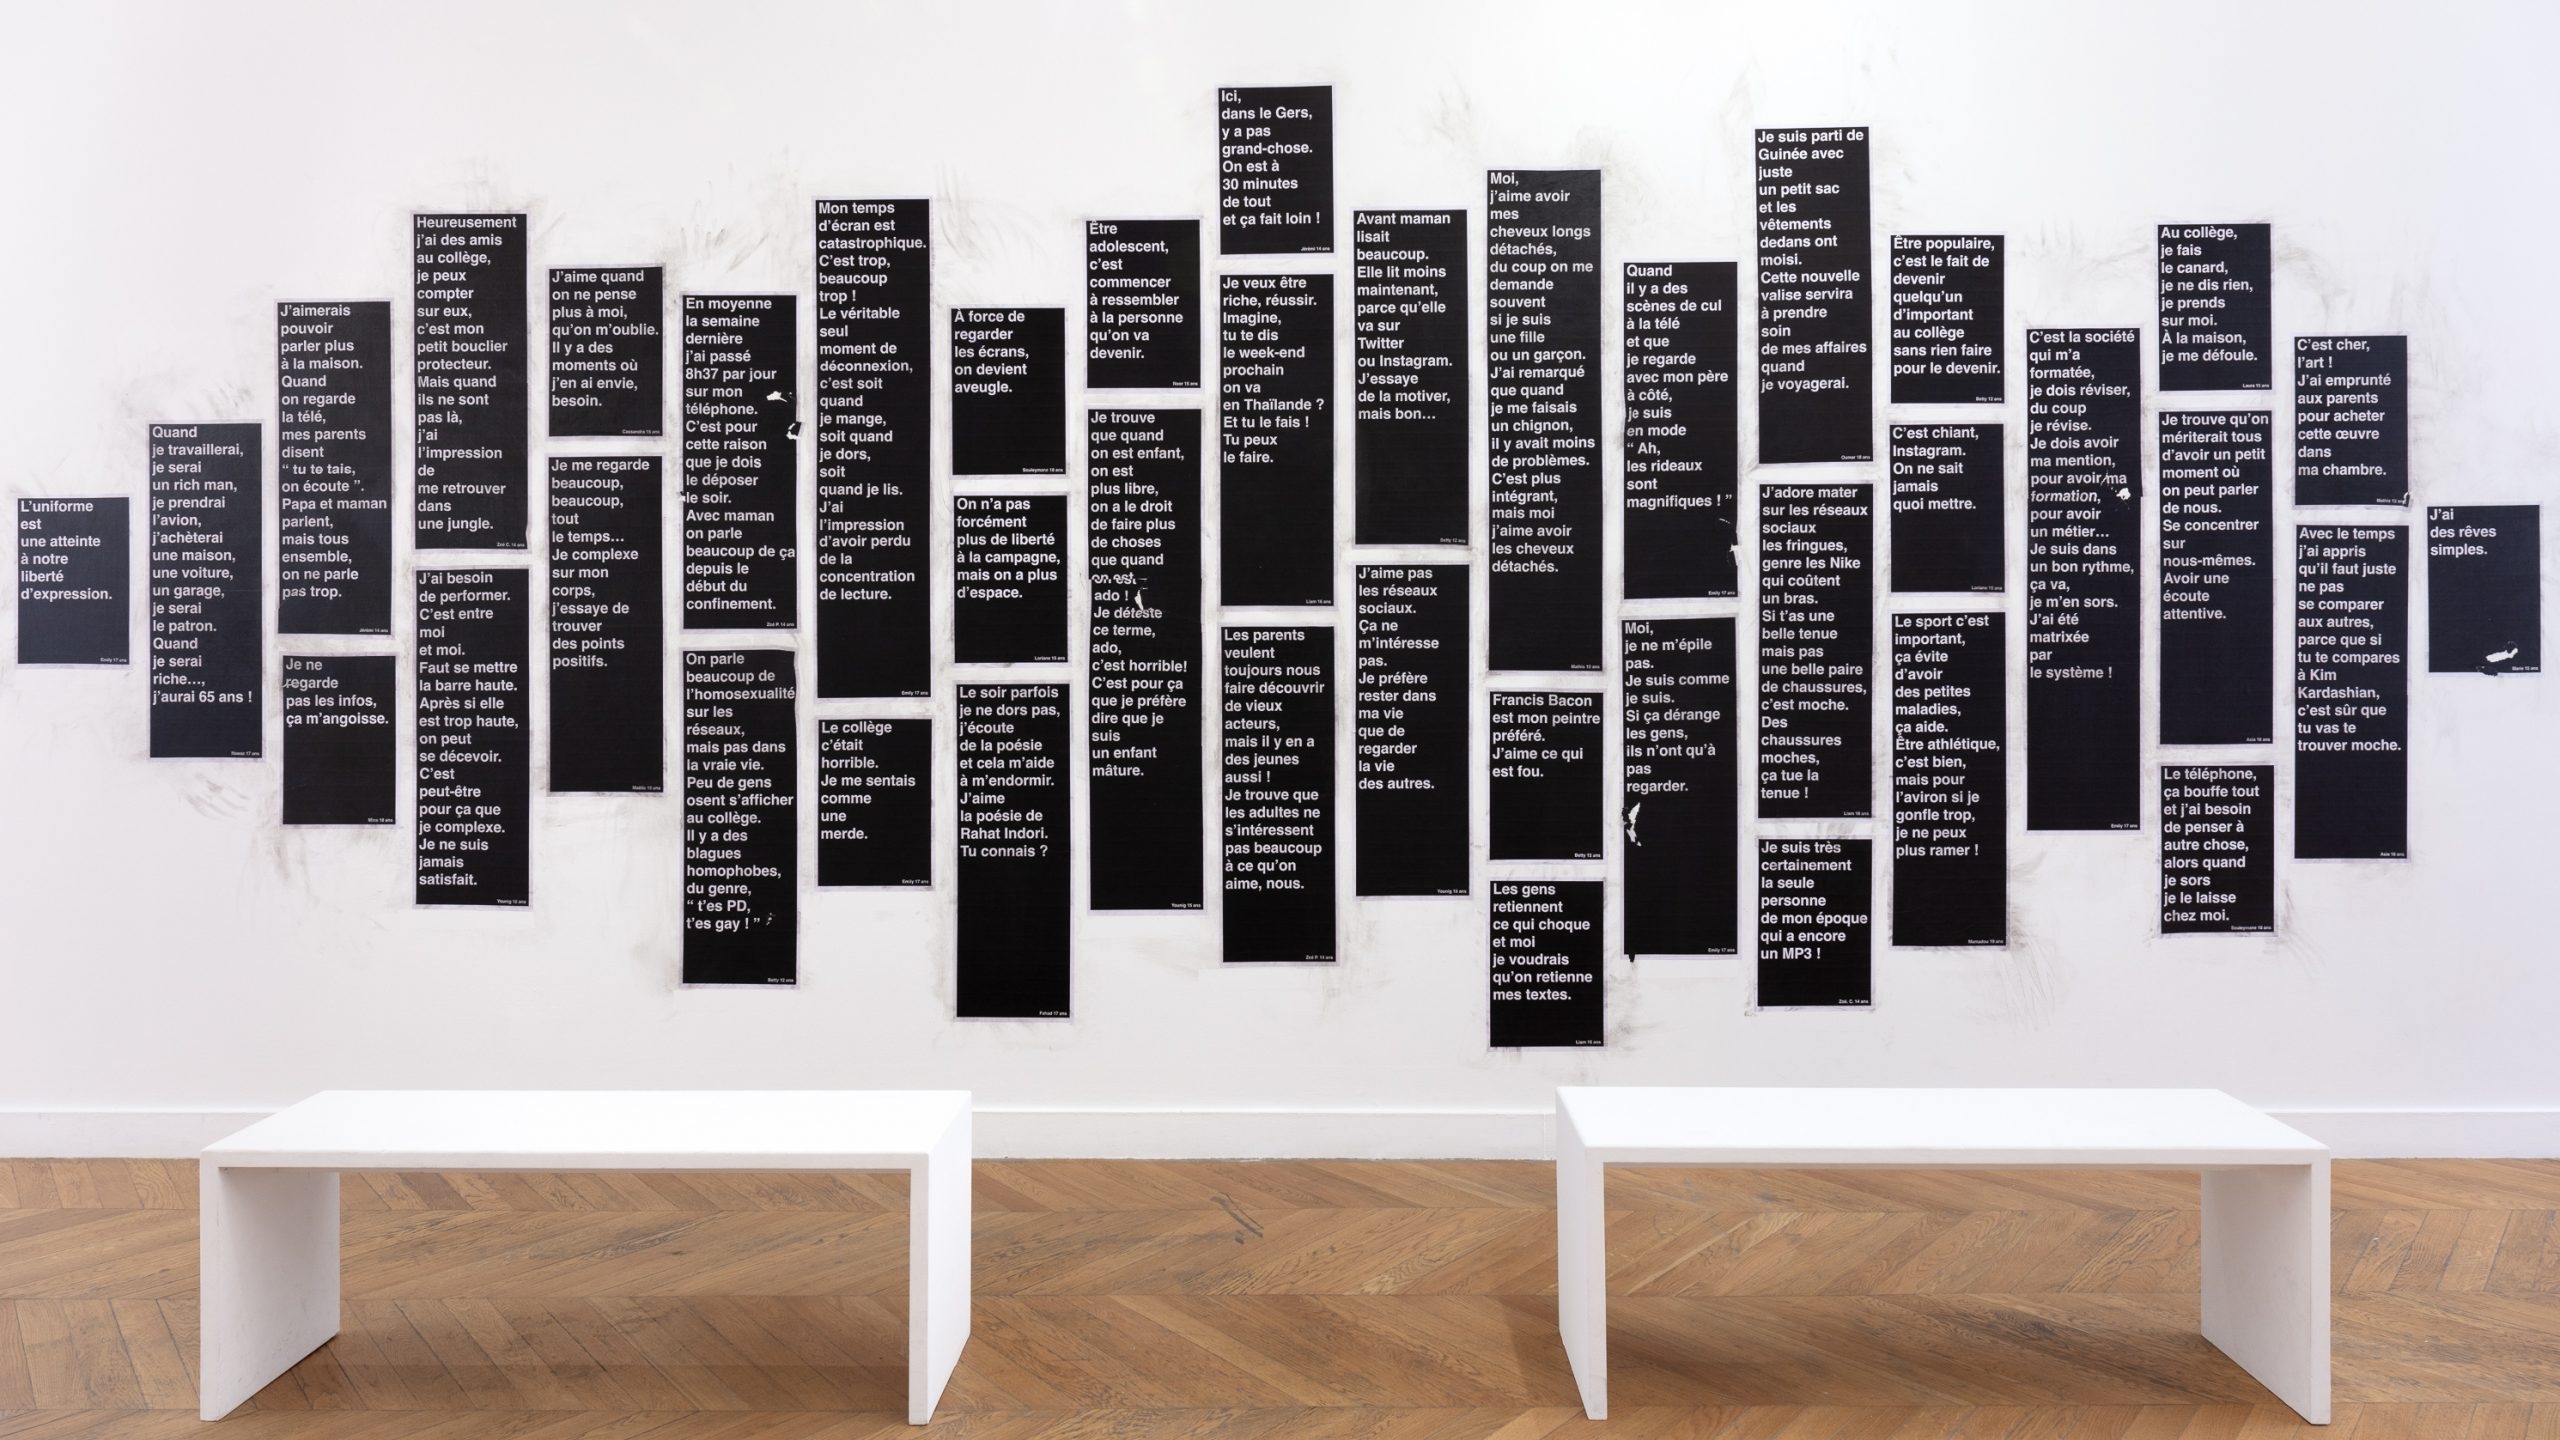 L'uniforme
est
une atteinte
à notre
liberté
d'expression.
Emily 17 ans
Quand
je travaillerai,
je serai
un rich man,
je prendrai
l'avion,
j'achèterai
une maison,
une voiture,
un garage,
je serai
le patron.
Quand
je serai
riche...,
j'aurai 65 ans !
17 ans
J'aimerais
pouvoir
parler plus
à la maison.
Quand
on regarde
la télé,
mes parents
disent
“ tu te tais,
on écoute ”.
Papa et maman
parlent,
mais tous
ensemble,
on ne parle
pas trop.
Jérémi 14 ans
Je ne
regarde
pas les infos,
ça m'angoisse.
18 ans
Heureusement
j'ai des amis
au collège,
je peux
compter
sur eux,
c'est mon
petit bouclier
protecteur.
Mais quand
ils ne sont
pas là,
j'ai
l'impression
de
me retrouver
dans
une jungle.
Zoé C. 14 ans
J'ai besoin
de performer.
C'est entre
moi
et moi.
Faut se mettre
la barre haute.
Après si elle
est trop haute,
on peut
se décevoir.
C'est
peut-être
pour ça que
je complexe.
Je ne suis
jamais
satisfait.
Younig 15 ans
J'aime quand
on ne pense
plus à moi,
qu'on m'oublie.
Il y a des
moments où
j'en ai envie,
besoin.
Cassandra 15 ans
Je me regarde
beaucoup,
beaucoup,
tout
le temps...
Je complexe
sur mon
corps,
j'essaye de
trouver
des points
positifs.
15 ans
En moyenne
la semaine
dernière
j'ai passé
8h37 par jour
sur mon
téléphone.
C'est pour
cette raison
que je dois
le déposer
le soir.
Avec maman
on parle
beaucoup de ça
depuis le
début du
confinement.
Zoé P. 14 ans
On parle
beaucoup de
l'homosexualité
sur les
réseaux,
mais pas dans
la vraie vie.
Peu de gens
osent s'afficher
au collège.
Il y a des
blagues
homophobes,
du genre,
“ t'es PD,
t'es gay ! ”
Betty 12 ans
Mon temps
d'écran est
catastrophique.
C'est trop,
beaucoup
trop !
Le véritable
seul
moment de
déconnexion,
c'est soit
quand
je mange,
soit quand
je dors,
soit
quand je lis.
J'ai
l'impression
d'avoir perdu
de la
concentration
de lecture.
Emily 17 ans
Le collège
c'était
horrible.
Je me sentais
comme
une
merde.
Emily 17 ans
À force de
regarder
les écrans,
on devient
aveugle.
Souleymane 18 ans
On n'a pas
forcément
plus de liberté
à la campagne,
mais on a plus
d'espace.
Loriane 15 ans
Le soir parfois
je ne dors pas,
j'écoute
de la poésie
et cela m'aide
à m'endormir.
J'aime
la poésie de
Rahat Indori.
Tu connais ?
Fahad 17 ans
Être
adolescent,
c'est
commencer
à ressembler
à la personne
qu'on va
devenir.
Noor 15 ans
Je trouve
que quand
on est enfant,
on est
plus libre,
on a le droit
de faire plus
de choses
que quand
on est
ado !
Je déteste
ce terme,
ado,
c'est horrible!
C'est pour ça
que je préfère
dire que je
suis
un enfant
mâture.
Younig 15 ans
Ici,
dans le Gers,
y a pas
grand-chose.
On est à
30 minutes
de tout
et ça fait loin !
Jérémi 14 ans
Je veux être
riche, réussir.
Imagine,
tu te dis
le week-end
prochain
on va
en Thaïlande ?
Et tu le fais !
Tu peux
le faire.
Liam 16 ans
Les parents
veulent
toujours nous
faire découvrir
de vieux
acteurs,
mais il y en a
des jeunes
aussi !
Je trouve que
les adultes ne
s'intéressent
pas beaucoup
à ce qu'on
aime, nous.
Zoé P. 14 ans
Avant maman
lisait
beaucoup.
Elle lit moins
maintenant,
parce qu'elle
va sur
Twitter
ou Instagram.
J'essaye
de la motiver,
mais bon...
Betty 12 ans
J'aime pas
les réseaux
sociaux.
Ça ne
m'intéresse
pas.
Je préfère
rester dans
ma vie
que de
regarder
la vie
des autres.
Younig 15 ans
Moi,
j'aime avoir
mes
cheveux longs
détachés,
du coup on me
demande
souvent
si je suis
une fille
ou un garçon.
J'ai remarqué
que quand
je me faisais
un chignon,
il y avait moins
de problèmes.
C'est plus
intégrant,
mais moi
j'aime avoir
les cheveux
détachés.
Mathis 13 ans
Francis Bacon
est mon peintre
préféré.
J'aime ce qui
est fou.
Betty 12 ans
Les gens
retiennent
ce qui choque
et moi
je voudrais
qu'on retienne
mes textes.
Liam 16 ans
Quand
il y a des
scènes de cul
à la télé
et que
je regarde
avec mon père
à côté,
je suis
en mode
“ Ah,
les rideaux
sont
magnifiques ! ”
Emily 17 ans
Moi,
je ne m'épile
pas.
Je suis comme
je suis.
Si ça dérange
les gens,
ils n'ont qu'à
pas
regarder.
Emily 17 ans
Je suis parti de
Guinée avec
juste
un petit sac
et les
vêtements
dedans ont
moisi.
Cette nouvelle
valise servira
à prendre
soin
de mes affaires
quand
je voyagerai.
Oumar 18 ans
J'adore mater
sur les réseaux
sociaux
les fringues,
genre les Nike
qui coûtent
un bras.
Si t'as une
belle tenue
mais pas
une belle paire
de chaussures,
c'est moche.
Des
chaussures
moches,
ça tue la
tenue !
Liam 16 ans
Je suis très
certainement
la seule
personne
de mon époque
qui a encore
un MP3 !
Zoé. C. 14 ans
Être populaire,
c'est le fait de
devenir
quelqu'un
d'important
au collège
sans rien faire
pour le devenir.
Betty 12 ans
C'est chiant,
Instagram.
On ne sait
jamais
quoi mettre.
Loriane 15 ans
Le sport c'est
important,
ça évite
d'avoir
des petites
maladies,
ça aide.
Être athlétique,
c'est bien,
mais pour
l'aviron si je
gonfle trop,
je ne peux
plus ramer !
Mamadou 19 ans
C'est la société
qui m'a
formatée,
je dois réviser,
du coup
je révise.
Je dois avoir
ma mention,
pour avoir ma
formation,
pour avoir
un métier...
Je suis dans
un bon rythme,
ça va,
je m'en sors.
J'ai été
matrixée
par
le système !
Emily 17 ans
Au collège,
je fais
le canard,
je ne dis rien,
je prends
sur moi.
À la maison,
je me défoule.
Laura 15 ans
Je trouve qu'on
mériterait tous
d'avoir un petit
moment où
on peut parler
de nous.
Se concentrer
sur
nous-mêmes.
Avoir une
écoute
attentive.
Asia 16 ans
Le téléphone,
ça bouffe tout
et j'ai besoin
de penser à
autre chose,
alors quand
je sors
je le laisse
chez moi.
Souleymane 18 ans
C'est cher,
l'art !
J'ai emprunté
aux parents
pour acheter
cette œuvre
dans
ma chambre.
Mathis 13 ans
Avec le temps
j'ai appris
qu'il faut juste
ne pas
se comparer
aux autres,
parce que si
tu te compares
à Kim
Kardashian,
c'est sûr que
tu vas te
trouver moche.
Asia 16 ans
J'ai
des rêves
simples.
Marie 15 ans